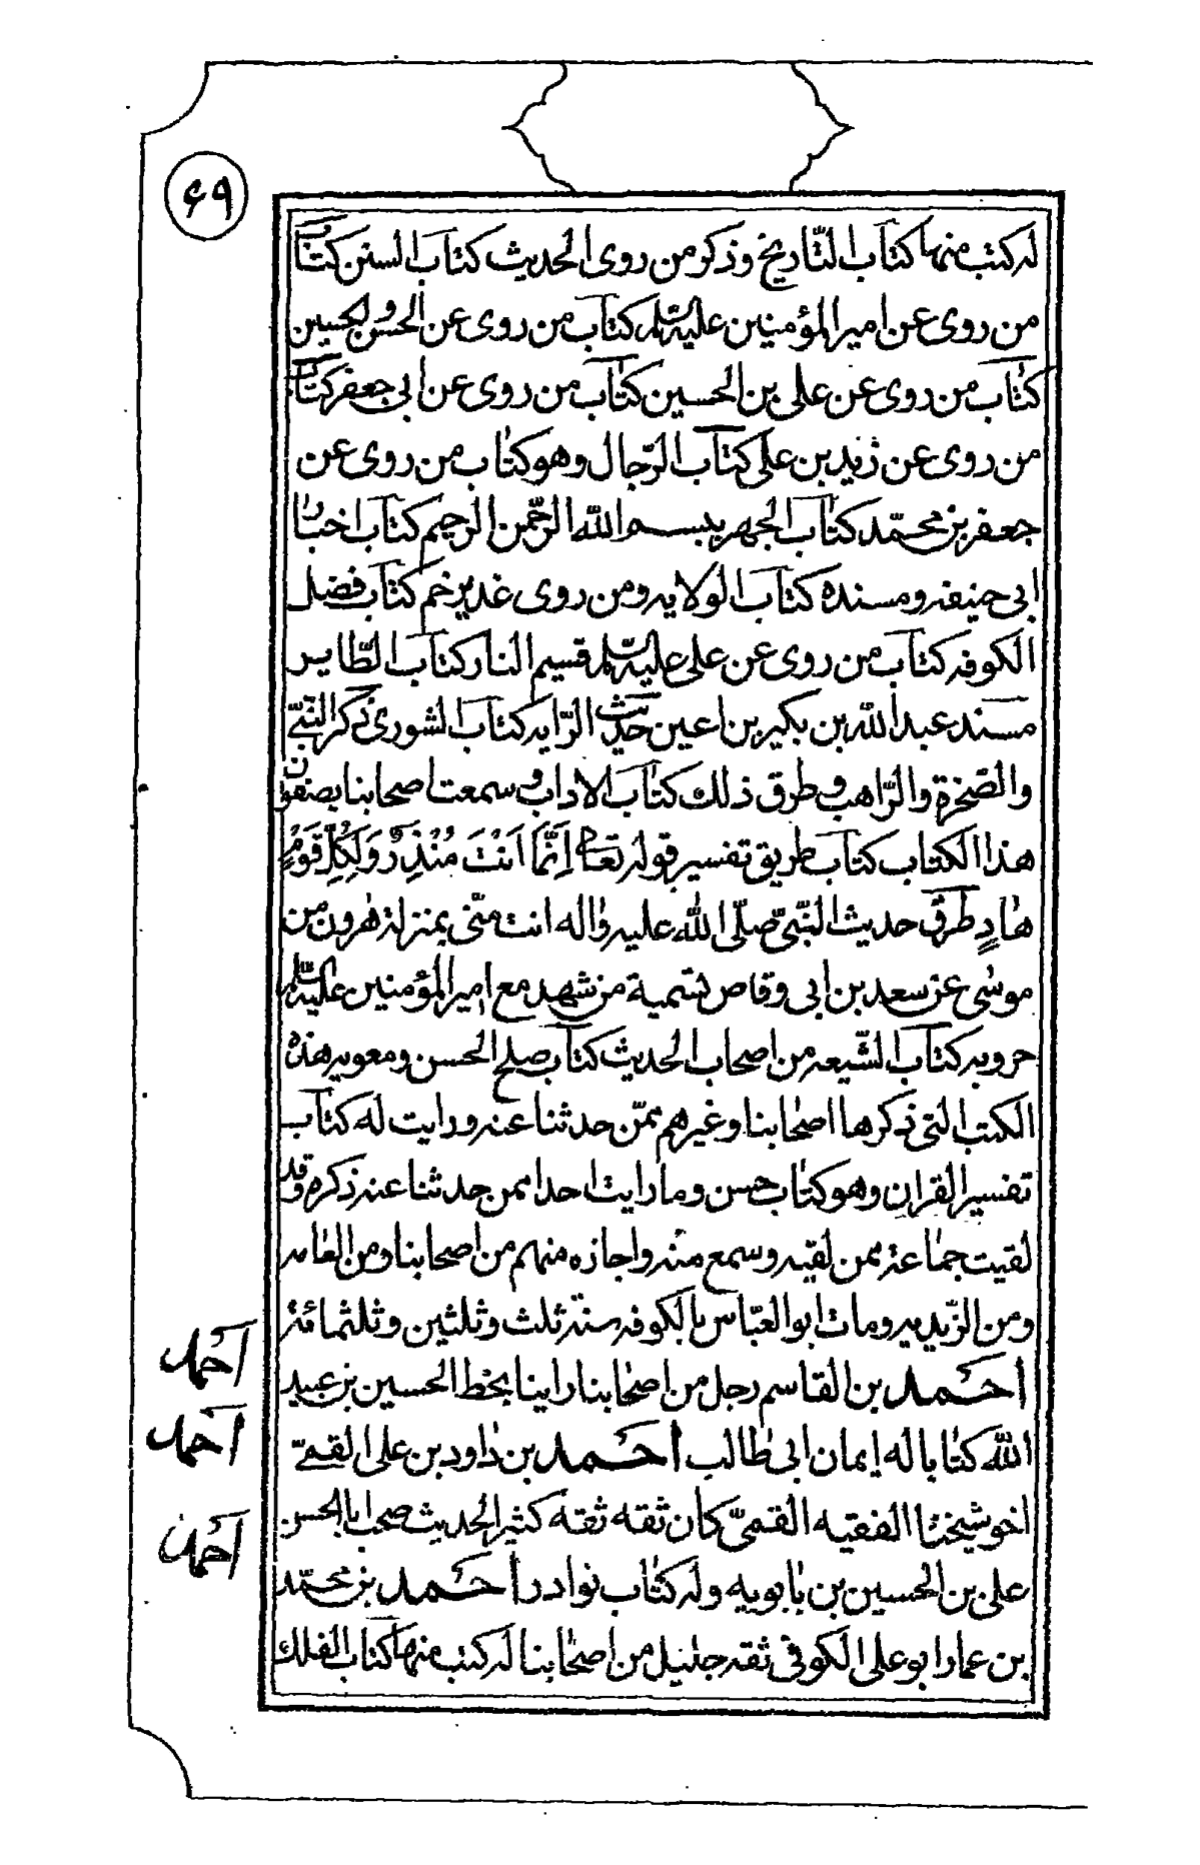 ۶۹
له كتب منها كتاب التّاريخ وذكر من روى الحديث كتاب السنن كتاب
من روى عن امير المؤمنين عليه السّلم كتاب من روى عن الحسن والحسين
كتاب من روى عن على بن الحسين كتاب من روى عن ابى جعفر كتاب
من روى عن زيد بن على كتاب الرّجال وهو كتاب من روى عن
جعفر بن محمّد كتاب الجهر ببسم الله الرّحمن الرحيم كتاب اخبار
ابى حنيفه ومسنده كتاب الولايه ومن روى غدير خم كتاب فضل
الكوفه كتاب من روى عن على عليه السّلم قسيم النار كتاب الطّاير
مسند عبد الله بن بكير بن اعين حديث الرّايه كتاب الشورى ذكر النّبىّ
والصّخرة والرّاهب وطرق ذلك كتاب الاداب وسمعت اصحابنا يصفون
هذا الكتاب كتاب طريق تفسير قوله تعالى اِنَّمٰا اَنْتَ مُنْذِرٌ وَلِكُلِّ قَوْمٍ
هٰادٍ طرق حديث النّبىّ صلّى الله عليه واٰله انت منّى بمنزلة هٰرون من
موسٰى عن سعد بن ابى وقاص تسمية من شهد مع امير المؤمنين عليه السّلم
حروبه كتاب الشّيعه من اصحاب الحديث كتاب صلح الحسن ومعويه هذه
الكتب التى ذكرها اصحٰابنا وغيرهم ممّن حدثنا عنه ورايت له كتاب
تفسير القران وهو كتٰاب حسن ومٰا رايت احدا ممن حدثنا عنه ذكره وقد
لقيت جمٰاعة ممن لقيه وسمع منه واجازه منهم من اصحابنا ومن العٰامه
ومن الزّيديه ومات ابو العبّاس بالكوفه سنة ثلث وثلثين وثلثمائة
احمد بن القاسم رجل من اصحٰابنا راينا بخط الحسين بن عبيد
الله كتٰابا له ايمان ابى طٰالب احمد بن دٰاود بن على القمىّ
اخو شيخنا الفقيه القمىّ كان ثقه ثقه كثير الحديث صحب ابا الحسن
على بن الحسين بن بٰابويه وله كتٰاب نوادر احمد بن محمّد
بن عمار ابو على الكوفى ثقه جليل من اصحٰابنا له كتب منها كتاب الفلك
احمد
احمد
احمد